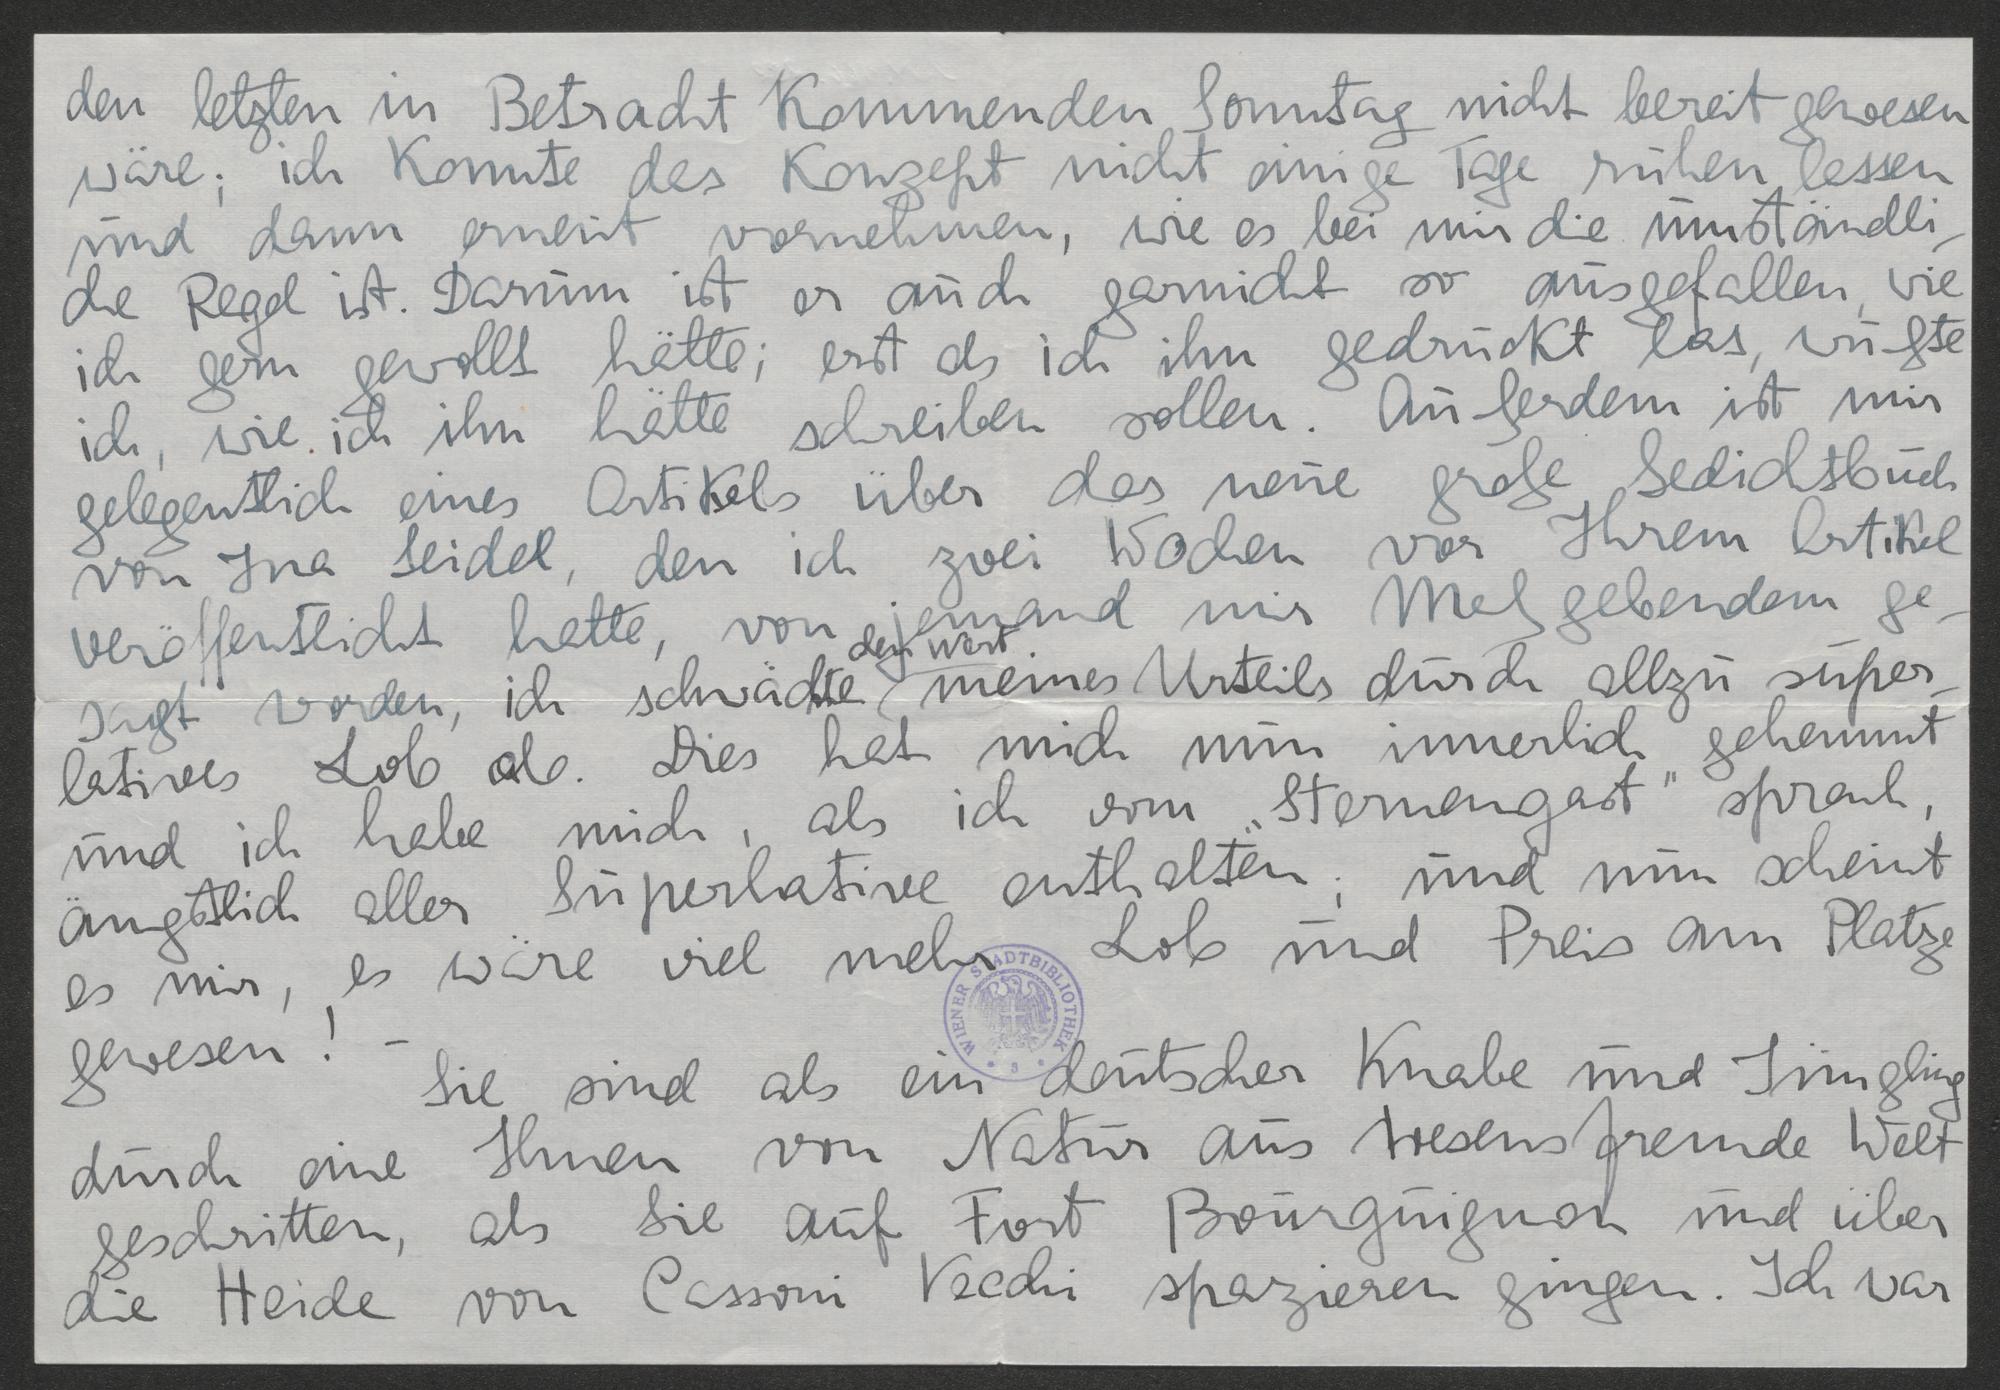 den letzten in Betracht kommenden Sonntag nicht bereit gewesen
wäre; ich konnte das Konzept nicht einige Tage ruhen lassen
und dann erneut vornehmen, wie es bei mir die
die Regel ist. Darum ist er auch garnicht so ausgefallen, wie
ich gern gewollt hätte; erst als ich ihn gedruckt las, wußte
ich, wie ich ihn hätte schreiben sollen. Außerdem ist mir
gelegentlich eines Artikels über das neue große Gedichtbuch
von Ina Seidel, den ich zwei Wochen vor Ihrem Artikel
veröffentlicht hatte, von jemand mir Maßgebendem ge-
sagt worden, ich schwächte den Wert meines Urteils durch allzu super-
latives Lob ab. Dies hat mich nun innerlich gehemmt
und ich habe mich, als ich vom „Sternengast" sprach,
ängstlich aller Superlative enthalten; und nun scheint
es mir, es wäre viel mehr Lob und Preis am Platze
gewesen! –
Sie sind als ein deutscher Knabe und Jüngling
durch eine Ihnen von Natur aus wesensfremde Welt
geschritten, als Sie auf Fort Bourguignon und über
die Heide von Cassoni Vecchi spazieren gingen. Ich war
WIENER STADTBIBLIOTHEK